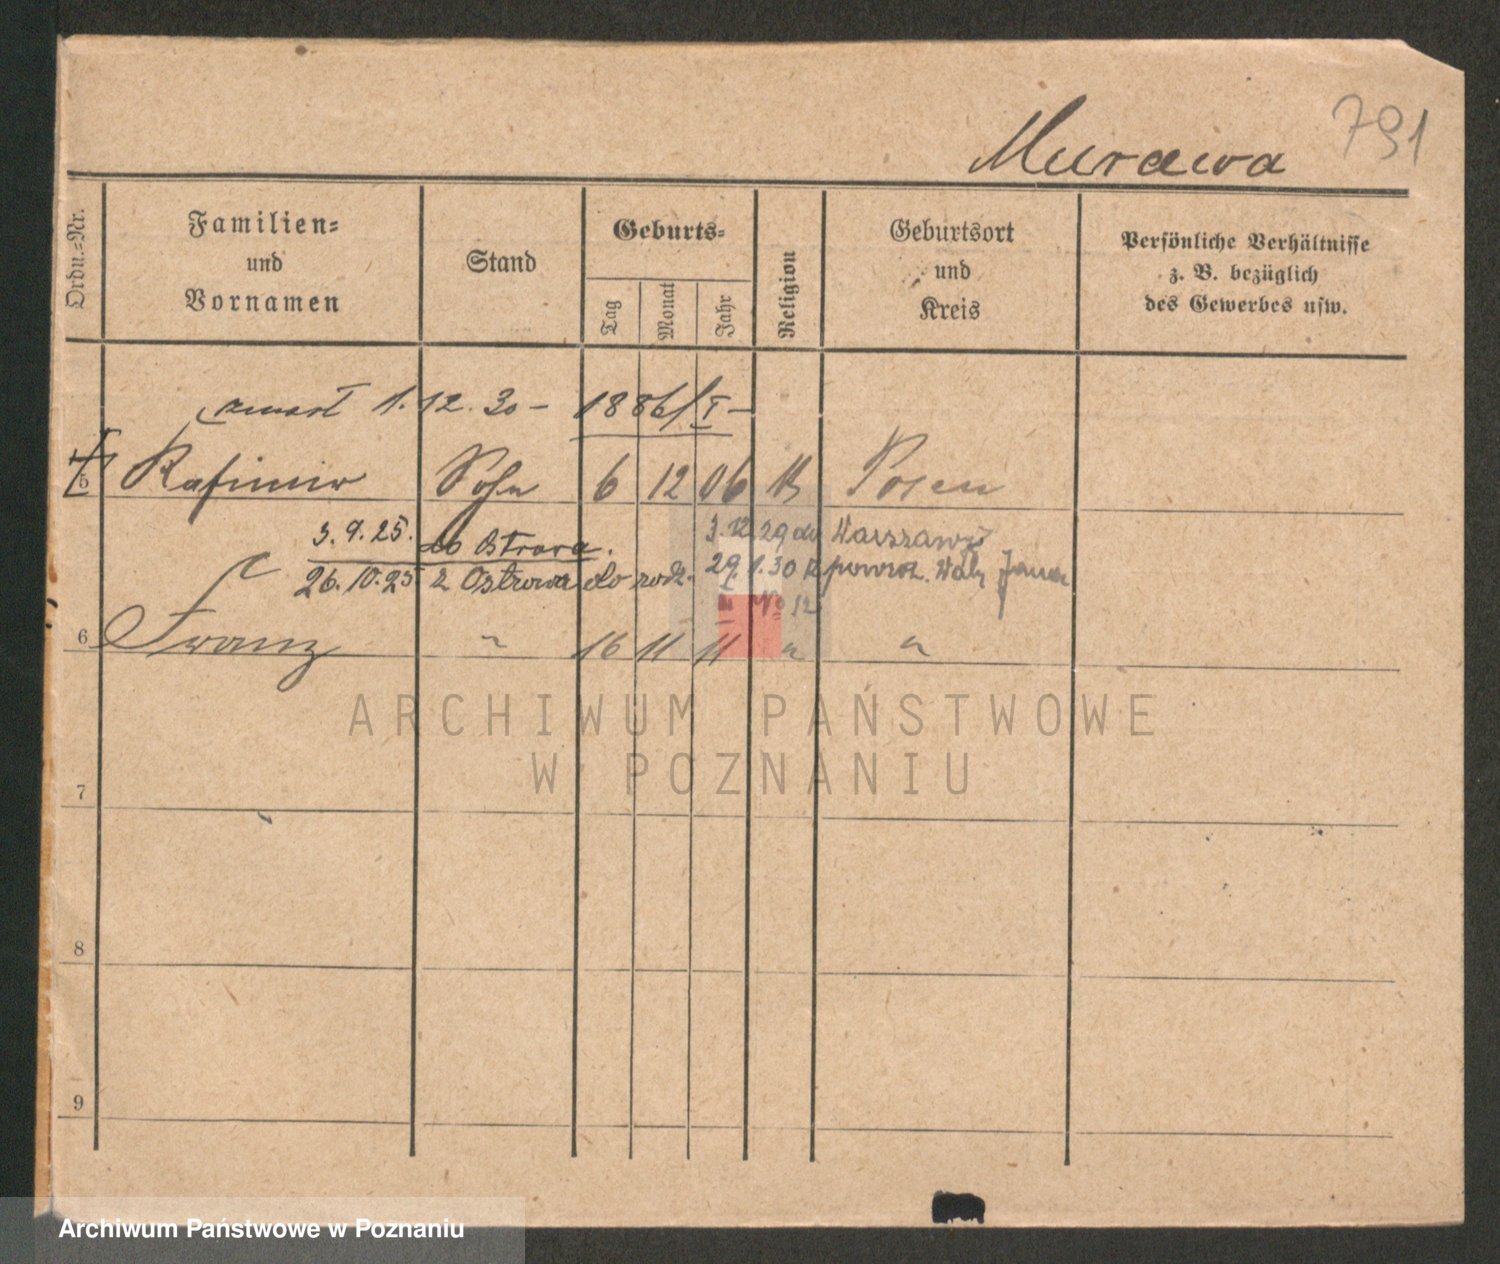 791
Murawa
Ordn.-Nr.
Familien-
und
Vornamen
Stand
Geburts-
Tag
Monat
Jahr
Religion
Geburtsort
und
Kreis
Persönliche Verhältnisse
z. B. bezüglich
des Gewerbes usw.
zmarł 1.12.30 – 1886/I –
5 Kasimir Sohn 6 12 06 K Posen
3.9.25. do Ostrowa. 3.12.29 do Warszawy
26.10.25 z Ostrowa do rodz. 29.1.30 powrót. Wały Jana
III No 12
6 Franz " 16 11 11 " "
ARCHIWUM PAŃSTWOWE
W POZNANIU
7
8
9
Archiwum Państwowe w Poznaniu